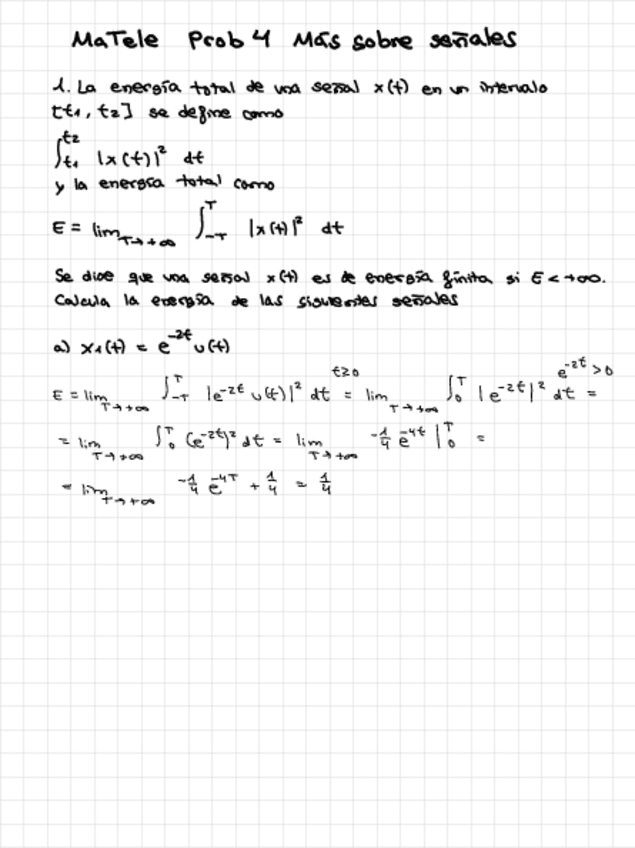 MaTele Prob 4 Más sobre señales
1. La energía total de una señal x(t) en un intervalo
[t1, t2] se define como
∫_{t1}^{t2} |x(t)|² dt
y la energía total como
E = lim_{T→+∞} ∫_{-T}^{T} |x(t)|² dt
Se dice que una señal x(t) es de energía finita si E < +∞.
Calcula la energía de las siguientes señales
a) x1(t) = e^{-2t} u(t)
E = lim_{T→+∞} ∫_{-T}^{T} |e^{-2t} u(t)|² dt =^{t≥0} lim_{T→+∞} ∫_0^T |e^{-2t}|² dt =^{e^{-2t}>0}
= lim_{T→+∞} ∫_0^T (e^{-2t})² dt = lim_{T→+∞} -1/4 e^{-4t} |_0^T =
= lim_{T→+∞} -1/4 e^{-4T} + 1/4 = 1/4